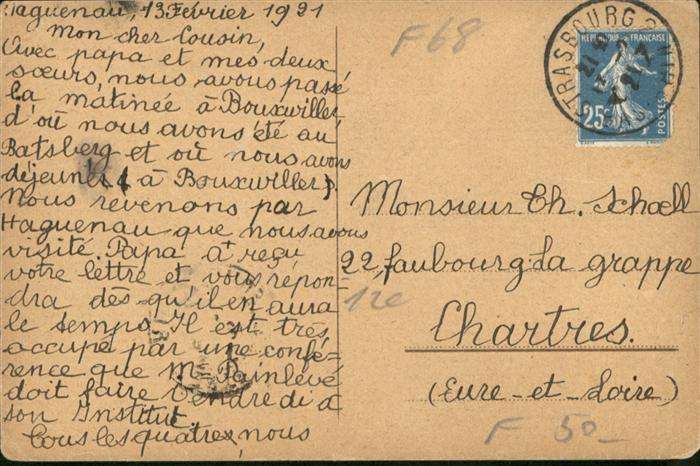 Haguenau, 13 Février 1921
Mon cher Cousin,
Avec papa et mes deux
sœurs, nous avons passé
la matinée à Bouxwiller
d'où nous avons été au
Batsberg et où nous avons
déjeuné (à Bouxwiller).
Nous revenons par
Haguenau que nous avons
visité. Papa a reçu
votre lettre et vous répon-
dra dès qu'il en aura
le temps. Il est très
occupé par une confé-
rence que M. Painlevé
doit faire Vendredi à
son Institut.
Tous les quatre, nous
F68
STRASBOURG
RÉPUBLIQUE FRANÇAISE
25c
POSTES
Monsieur Th. Schoell
22, faubourg la grappe
12e
Chartres.
(Eure-et-Loire)
F 50-